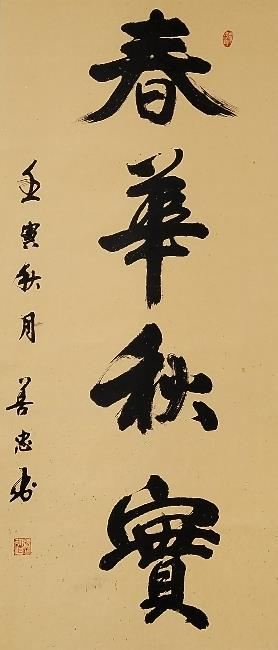 春華秋實
壬寅秋月 善忠书